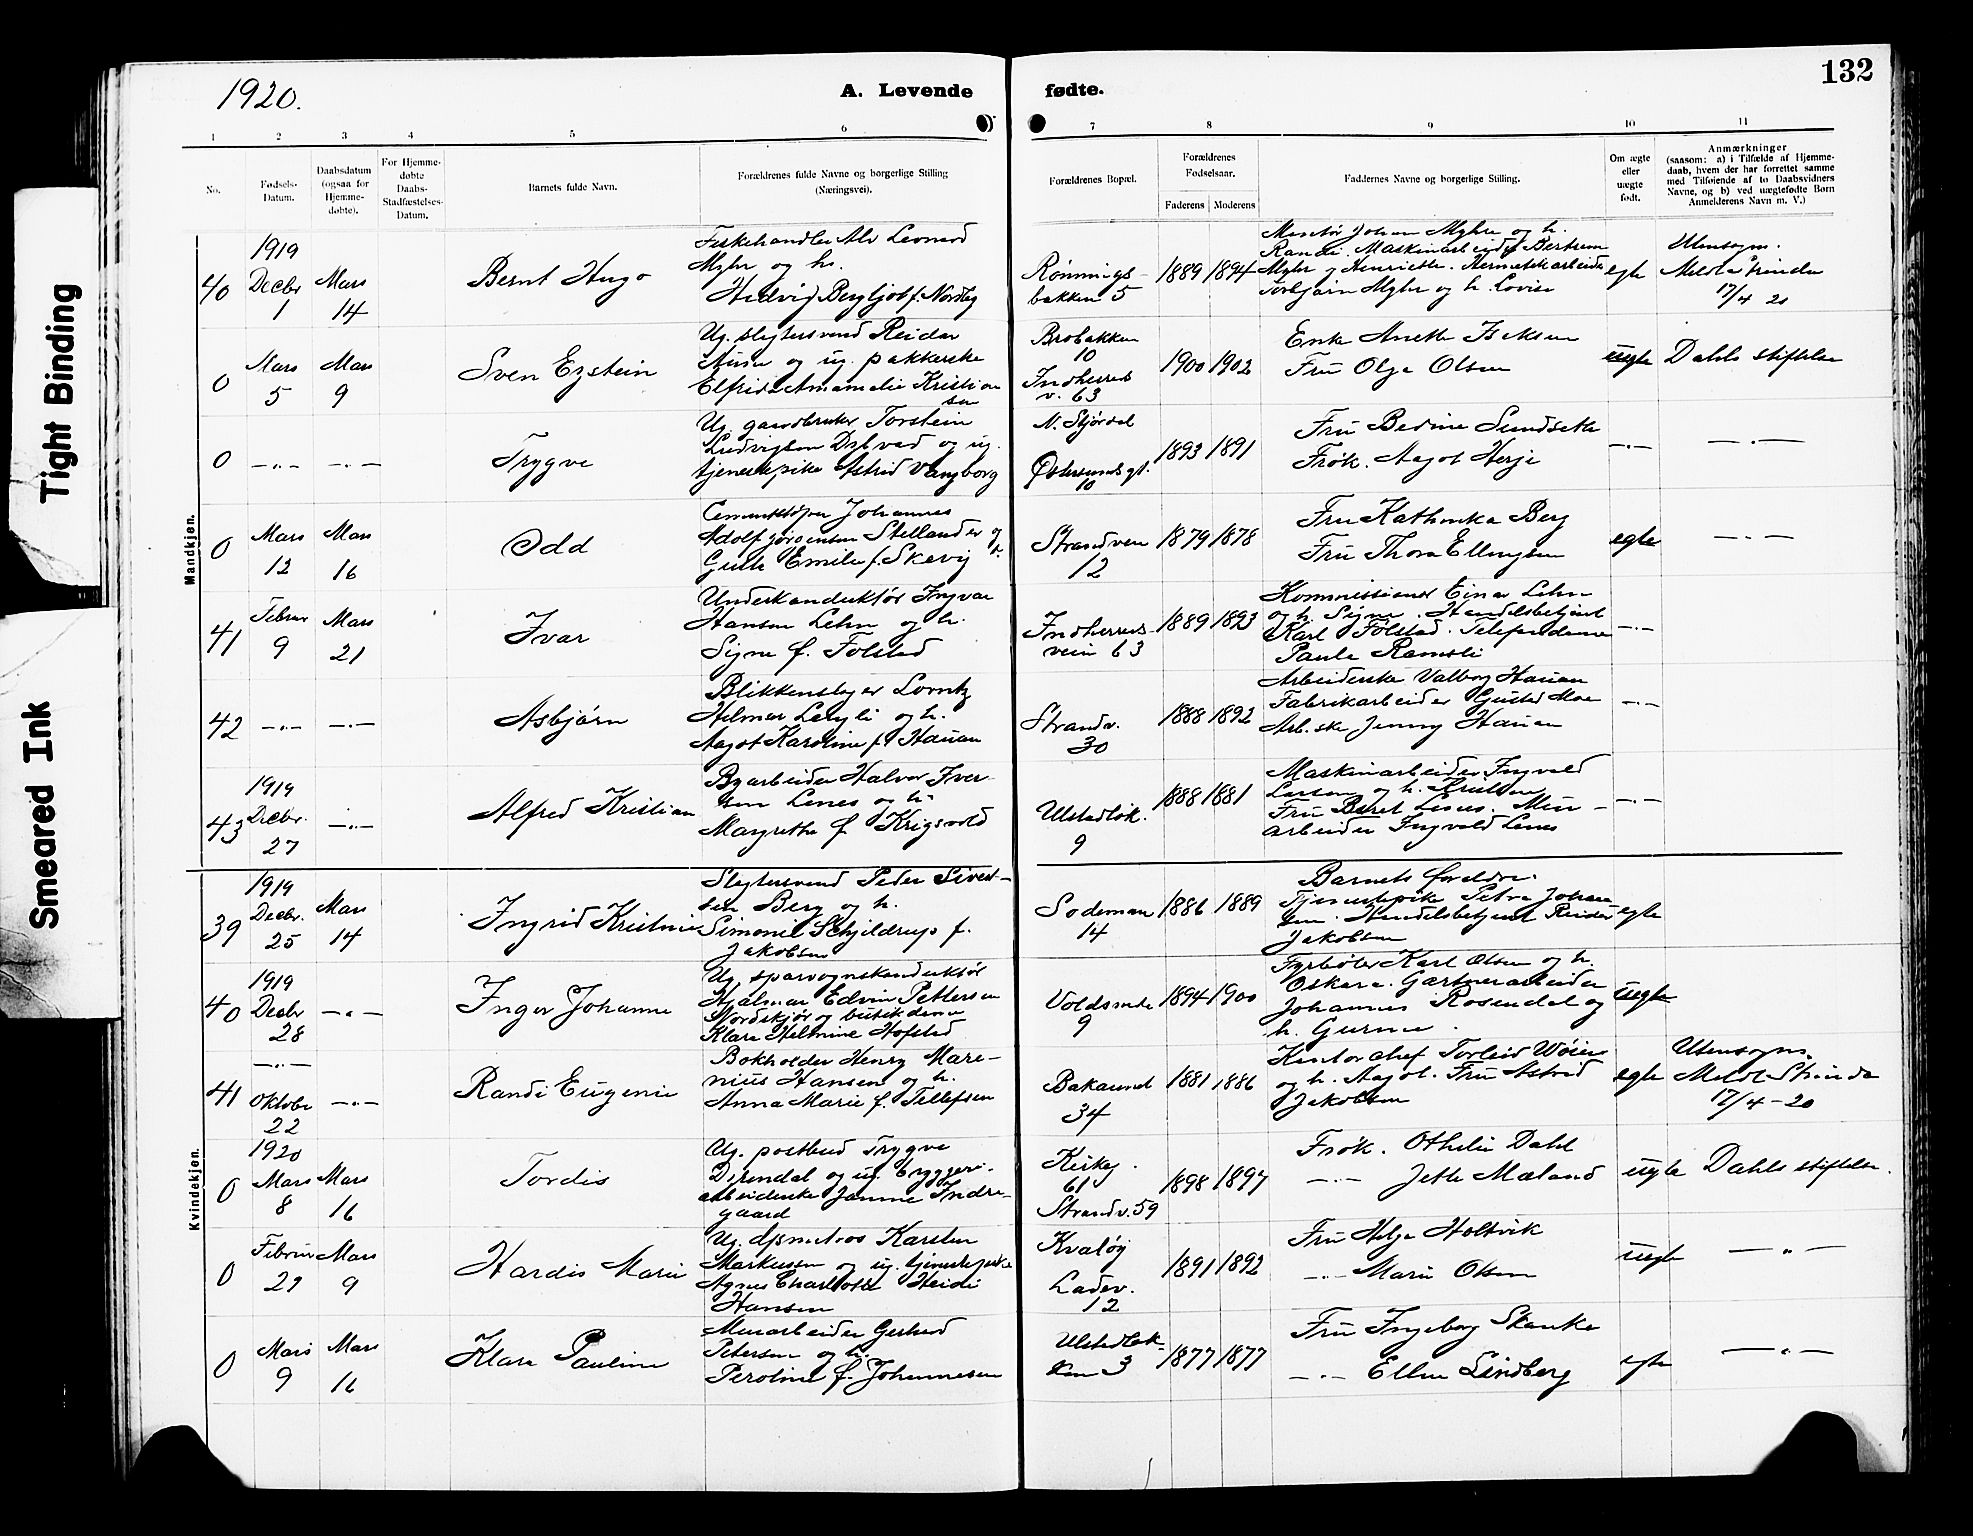 Tight Binding
Smeared Ink
1920.
A. Levende fødte.
132
1 2 3 4 5 6 7 8 9 10 11
No.
Fødsels-
Datum.
Daabsdatum
(ogsaa for
Hjemme-
døbte).
For Hjemme-
døbte
Daabs-
Stadfæstelses-
Datum.
Barnets fulde Navn.
Forældrenes fulde Navne og borgerlige Stilling
(Næringsvei).
Forældrenes Bopæl.
Forældrenes
Fødselsaar.
Faderens Moderens
Faddernes Navne og borgerlige Stilling.
Om ægte
eller
uægte
født.
Anmærkninger
(saasom: a) i Tilfælde af Hjemme-
daab, hvem der har forrettet samme
med Tilføiende af to Daabsvidners
Navne, og b) ved uægtefødte Børn
Anmelderens Navn m. V.)
Mandkjøn.
40
1919
Decbr
1
Mars
14
Bernt Hugo
Fiskehandler Alv Leonard
Myhr og h.
Hedvig Bergljot f. Nordby
Rønnings-
bakken 5
1889 1894
Johan Myhre og h.
Randi. Maskinarbeider Bertram
Myhr og Henriette. Hermetikarbeider
Torbjørn Myhr og h. Lovise
egte
Utensogns.
Meldt Strinden
17/4 20
0
Mars
5
Mars
9
Sven Eystein
Ug. slagtersvend Reidar
Aune og ug. pakkerske
Elfrida Amamalie Kristian
sen
Brobakken
10
Indherreds
v. 63
1900 1902
Enke Anette Isaksen
Fru Olga Olsen
uegte
Dahls stiftelse
0
—„—
—„—
Trygve
Ug. gaardbruker Torstein
Ludvigsen Dybvad og ug.
tjenestepike Astrid Vangborg
N. Stjørdal
Østersundsgt.
10
1893 1891
Fru Bedine Sundseth
Frøk. Aagot Herje
—„—
—„—
0
Mars
12
Mars
16
Odd
Cementstøper Johannes
Adolf Jørgensen Stellander og
h.
Guda Emilie f. Skevig
Strandveien
12
1879 1878
Fru Kathinka Berg
Fru Thora Ellingsen
egte
—„—
41
Februar
9
Mars
21
Ivar
Underkonduktør Ingvar
Hansen Lehn og h.
Signe f. Folstad
Indherreds-
veien 63
1889 1893
Kommissionær Einar Lehn
og h. Signe. Handelsbetjent
Karl Folstad. Telefondame
Paula Ramsli
—„—
42
—„—
—„—
Asbjørn
Blikkenslager Lorntz
Hilmar Lergli og h.
Aagot Karoline f. Hauan
Strandv.
30
1888 1892
Arbeiderske Valborg Hauan
Fabrikarbeider Gustad Moe
Arb.ske Jenny Hauan
—„—
43
1919
Decbr.
27
—„—
Alfred Kristian
Byarbeider Halvor Iver-
sen Lenes og h.
Margrethe f. Krigsvold
Ulstadløk.
9
1888 1881
Maskinarbeider Ingvald
Larsen og h. Kristine
Fru Beret Lenes. Mur-
arbeider Ingvald Lenes
—„—
Kvindekjøn.
39
1919
Decbr.
25
Mars
14
Ingrid Kristine
Slagtersvend Peder Sivert-
sen Berg og h.
Simonie Schjildrup f.
Jakobsen
Sodeman
14
1886 1889
Barnets foreldre.
Tjenestepike Petra Johan-
sen. Handelsbetjent Reidar
Jakobsen
egte
40
1919
Decbr
28
—„—
Inger Johanne
Ug. sporvognskonduktør
Hjalmar Edvin Pettersen
Nordskjør og butikdame
Klara Helmine Hofstad
Voldsminde
9
1894 1900
Fyrbøter Karl Olsen og h.
Oskara. Gartnerarbeider
Johannes Rosendal og
h. Gurine.
uegte
41
—„—
Oktober
22
—„—
Randi Eugenie
Bokholder Henry Mare-
nius Hansen og h.
Anna Marie f. Tellefsen
Bakaunet
34
1881 1886
Kontorchef Torleid Wøien
og h. Aagot. Fru Astrid
Jakobsen
egte
Utensogns.
Meldt Strinda
17/4 - 20
0
1920
Mars
8
Mars
16
Tordis
Ug. postbud Trygve
Direndal og ug. bryggeri-
arbeiderske Janna Indre-
gaard
Kirkeg.
61
Strandv. 59
1898 1897
Frøk. Othelie Dahl
—„— Jette Mæland
uegte
Dahls stiftelse.
0
Februar
29
Mars
9
Hardis Marie
Ug. Karsten
Markussen og ug. tjenestepike
Agnes Charlotte Heidi
Hansen
Kvaløy
Ladev.
12
1891 1892
Fru Helga Holtvik
—„— Marie Olsen
uegte
—„—
0
Mars
9
Mars
16
Klara Pauline
Murarbeider Gerhard
Petersen og h.
Peroline f. Johannesen
Ulstadløk-
ken 3
1877 1877
Fru Ingeborg Skanke
—„— Ellen Lindberg
egte
—„—